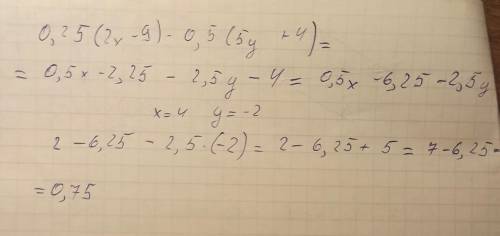 0,25(2x-9)-0,5(5y+4)=
= 0,5x-2,25 - 2,5y - 4 = 0,5x -6,25 -2,5y
x=4 y=-2
2 - 6,25 - 2,5·(-2) = 2 - 6,25 + 5 = 7-6,25=
=0,75